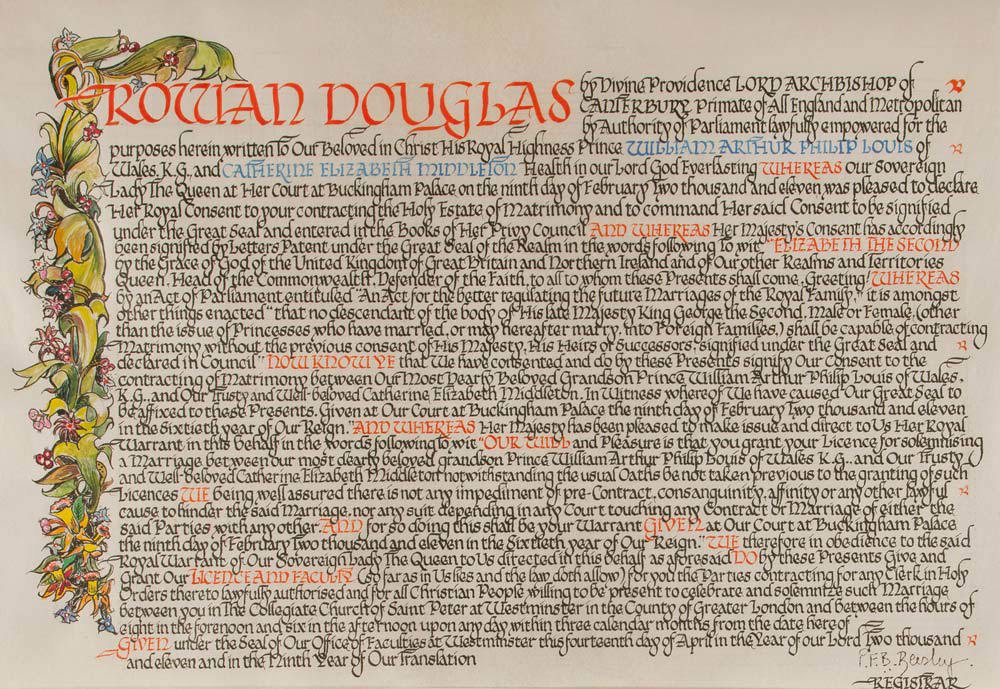 ROWAN DOUGLAS by Divine Providence LORD ARCHBISHOP of
CANTERBURY Primate of All England and Metropolitan
by Authority of Parliament lawfully empowered for the
purposes herein written To Our Beloved in Christ His Royal Highness Prince WILLIAM ARTHUR PHILIP LOUIS of
Wales, K.G., and CATHERINE ELIZABETH MIDDLETON Health in our Lord God Everlasting WHEREAS our Sovereign
Lady The Queen at Her Court at Buckingham Palace on the ninth day of February Two thousand and eleven was pleased to declare
Her Royal Consent to your contracting the Holy Estate of Matrimony and to command Her said Consent to be signified
under the Great Seal and entered in the Books of Her Privy Council AND WHEREAS Her Majesty's Consent has accordingly
been signified by Letters Patent under the Great Seal of the Realm in the words following To wit "ELIZABETH THE SECOND
by the Grace of God of the United Kingdom of Great Britain and Northern Ireland and of Our other Realms and Territories
Queen, Head of the Commonwealth, Defender of the Faith, to all to whom these Presents shall come, Greeting WHEREAS
by an Act of Parliament entituled "An Act for the better regulating the future Marriages of the Royal Family," it is amongst
other things enacted "that no descendant of the body of His late Majesty King George the Second, Male or Female, (other
than the issue of Princesses who have married, or may hereafter marry, into Foreign Families,) shall be capable of contracting
Matrimony without the previous consent of His Majesty, His Heirs or Successors, signified under the Great Seal and
declared in Council" NOW KNOW YE that We have consented and do by these Presents signify Our Consent to the
contracting of Matrimony between Our Most Dearly Beloved Grandson Prince William Arthur Philip Louis of Wales,
K.G., and Our Trusty and Well-beloved Catherine Elizabeth Middleton. In Witness whereof We have caused Our Great Seal to
be affixed to these Presents. Given at Our Court at Buckingham Palace the ninth day of February Two thousand and eleven
in the Sixtieth year of Our Reign." AND WHEREAS Her Majesty has been pleased to make issue and direct to Us Her Royal
Warrant in this behalf in the words following To wit "OUR WILL and Pleasure is that you grant your Licence for solemnising
a Marriage between our most dearly beloved grandson Prince William Arthur Philip Louis of Wales K.G., and Our Trusty
and Well-beloved Catherine Elizabeth Middleton notwithstanding the usual Oaths be not taken previous to the granting of such
Licences WE being well assured there is not any impediment of pre-Contract, consanguinity, affinity or any other lawful
cause to hinder the said Marriage, nor any suit depending in any Court touching any Contract or Marriage of either the
said Parties with any other AND for so doing this shall be your Warrant GIVEN at Our Court at Buckingham Palace
the ninth day of February Two thousand and eleven in the Sixtieth year of Our Reign." WE therefore in obedience to the said
Royal Warrant of Our Sovereign Lady The Queen to Us directed in this behalf as aforesaid DO by these Presents Give and
Grant Our LICENCE AND FACULTY (so far as in Us lies and the law doth allow) for you the Parties contracting for any Clerk in Holy
Orders thereto lawfully authorised and for all Christian People willing to be present to celebrate and solemnize such Marriage
between you in The Collegiate Church of Saint Peter at Westminster in the County of Greater London and between the hours of
eight in the forenoon and six in the afternoon upon any day within three calendar months from the date here of
GIVEN under the Seal of Our Office of Faculties at Westminster this fourteenth day of April in the Year of our Lord Two thousand
and eleven and in the Ninth Year of Our Translation
P.F.B. Beesley.
REGISTRAR